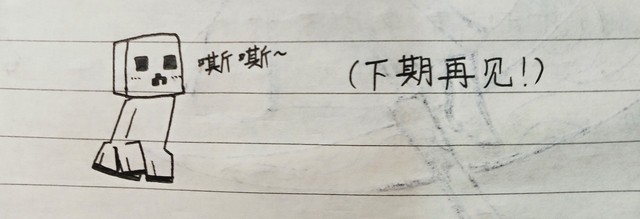 嘶嘶~ (下期再见!)